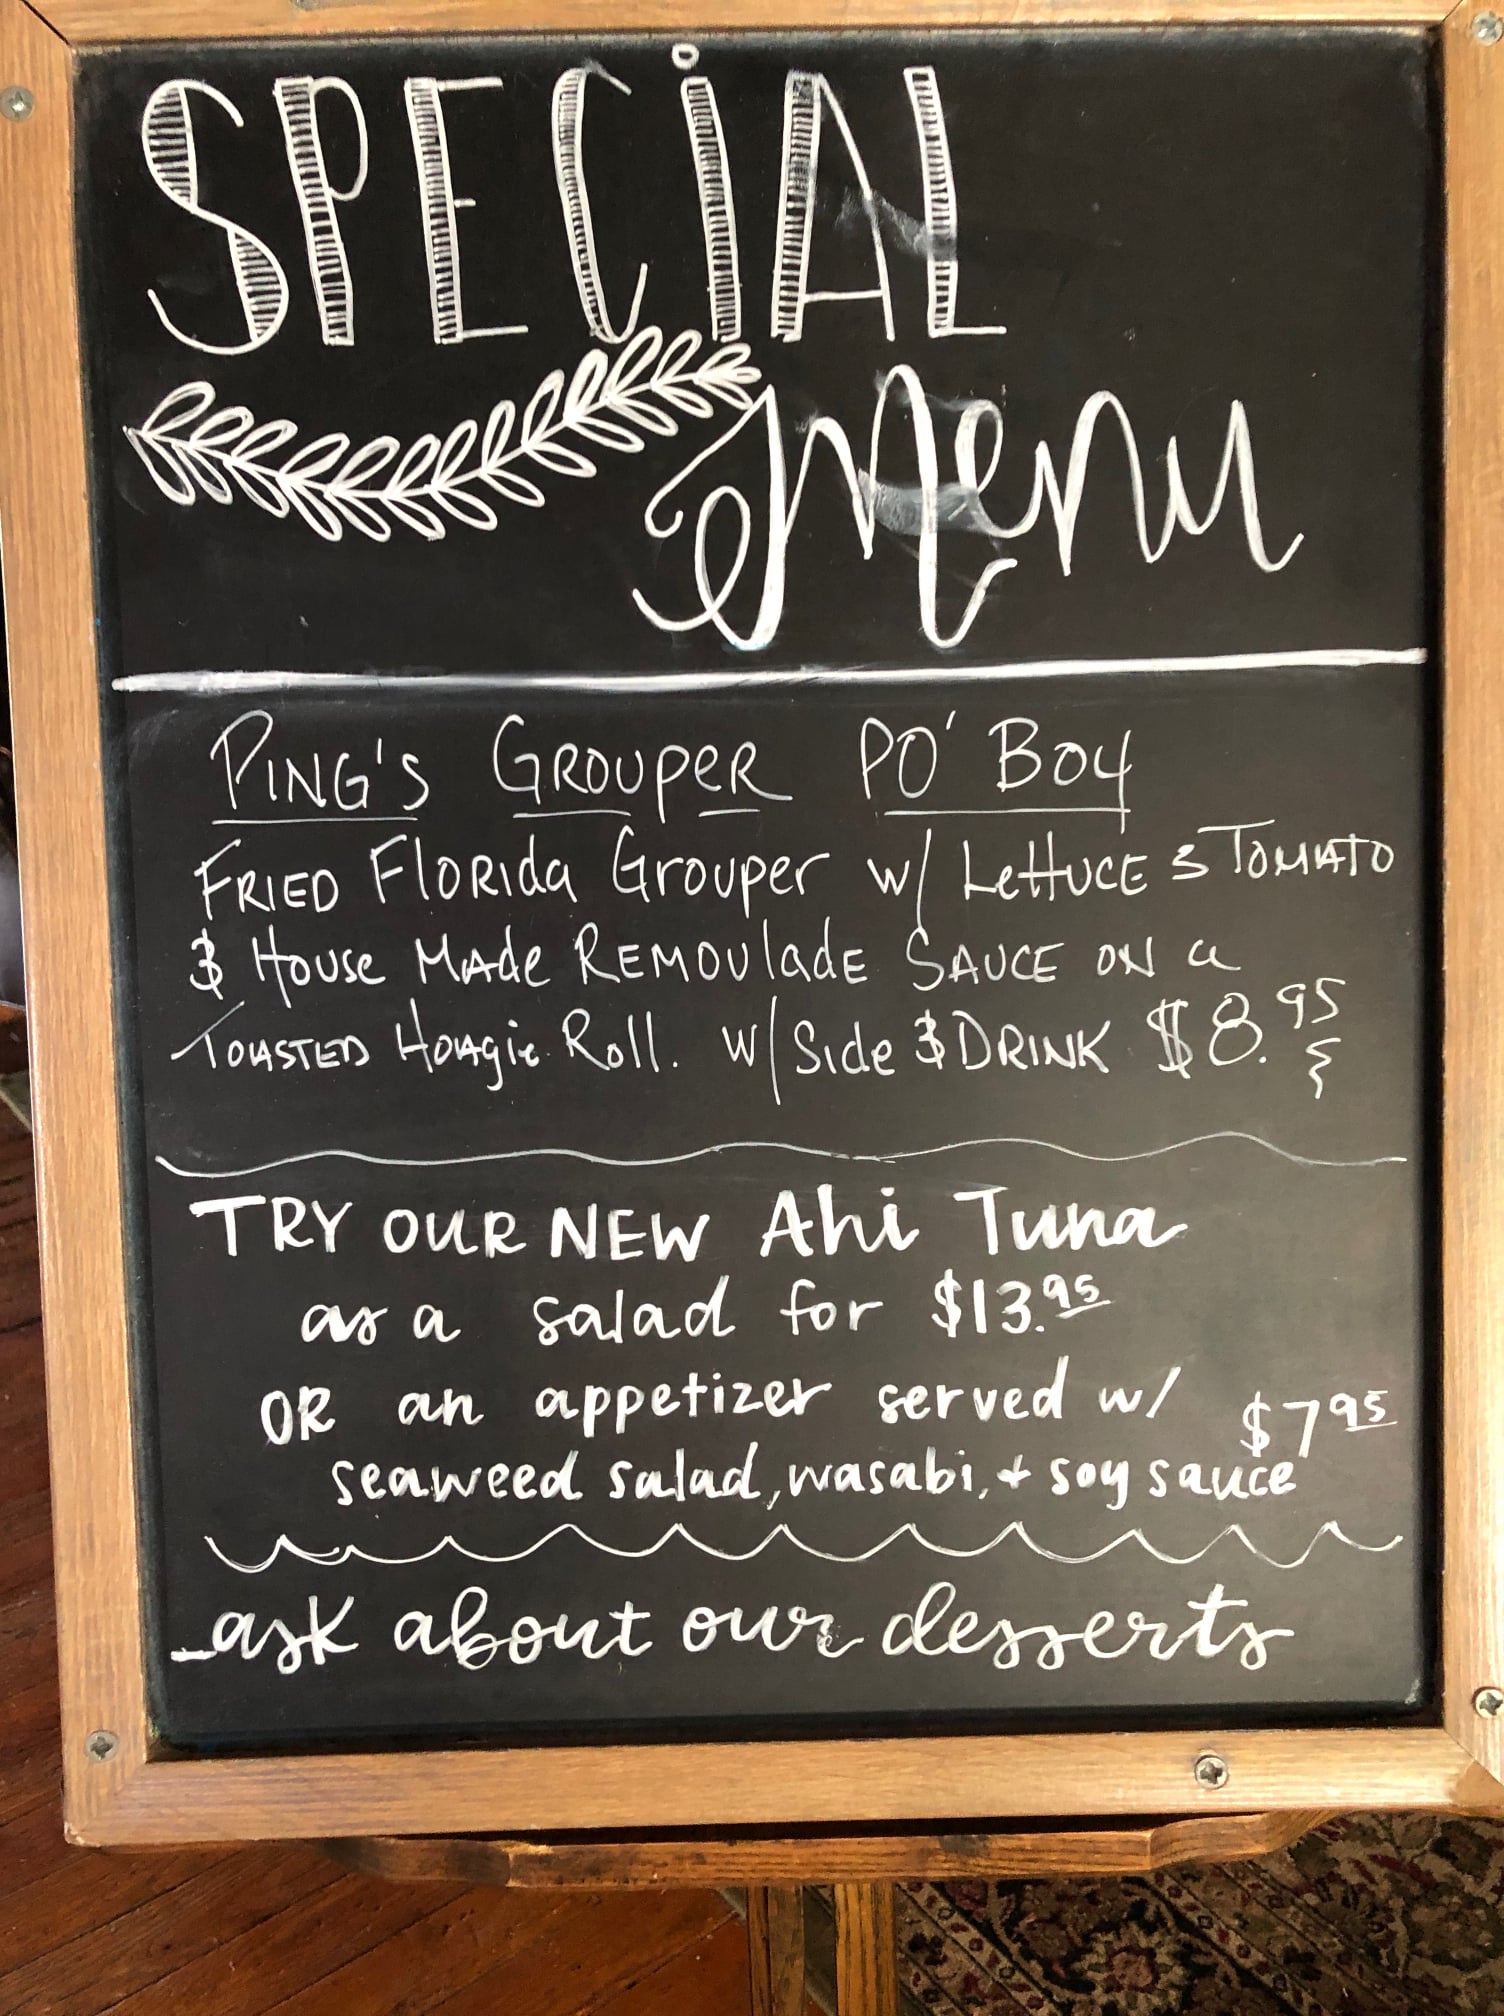 SPECiAL
Menu
PING'S GROUPER PO' BOY
FRIED FlORIda Grouper w/ LettuCE & TOMATO
& House MAde REMOUladE SAUCE ON a
TOASTED Hoagie Roll. w/ Side & DRINK $8.95
TRY OUR NEW Ahi Tuna
as a salad for $13.95
OR an appetizer served w/ $7 95
seaweed salad, wasabi, + soy sauce
ask about our desserts